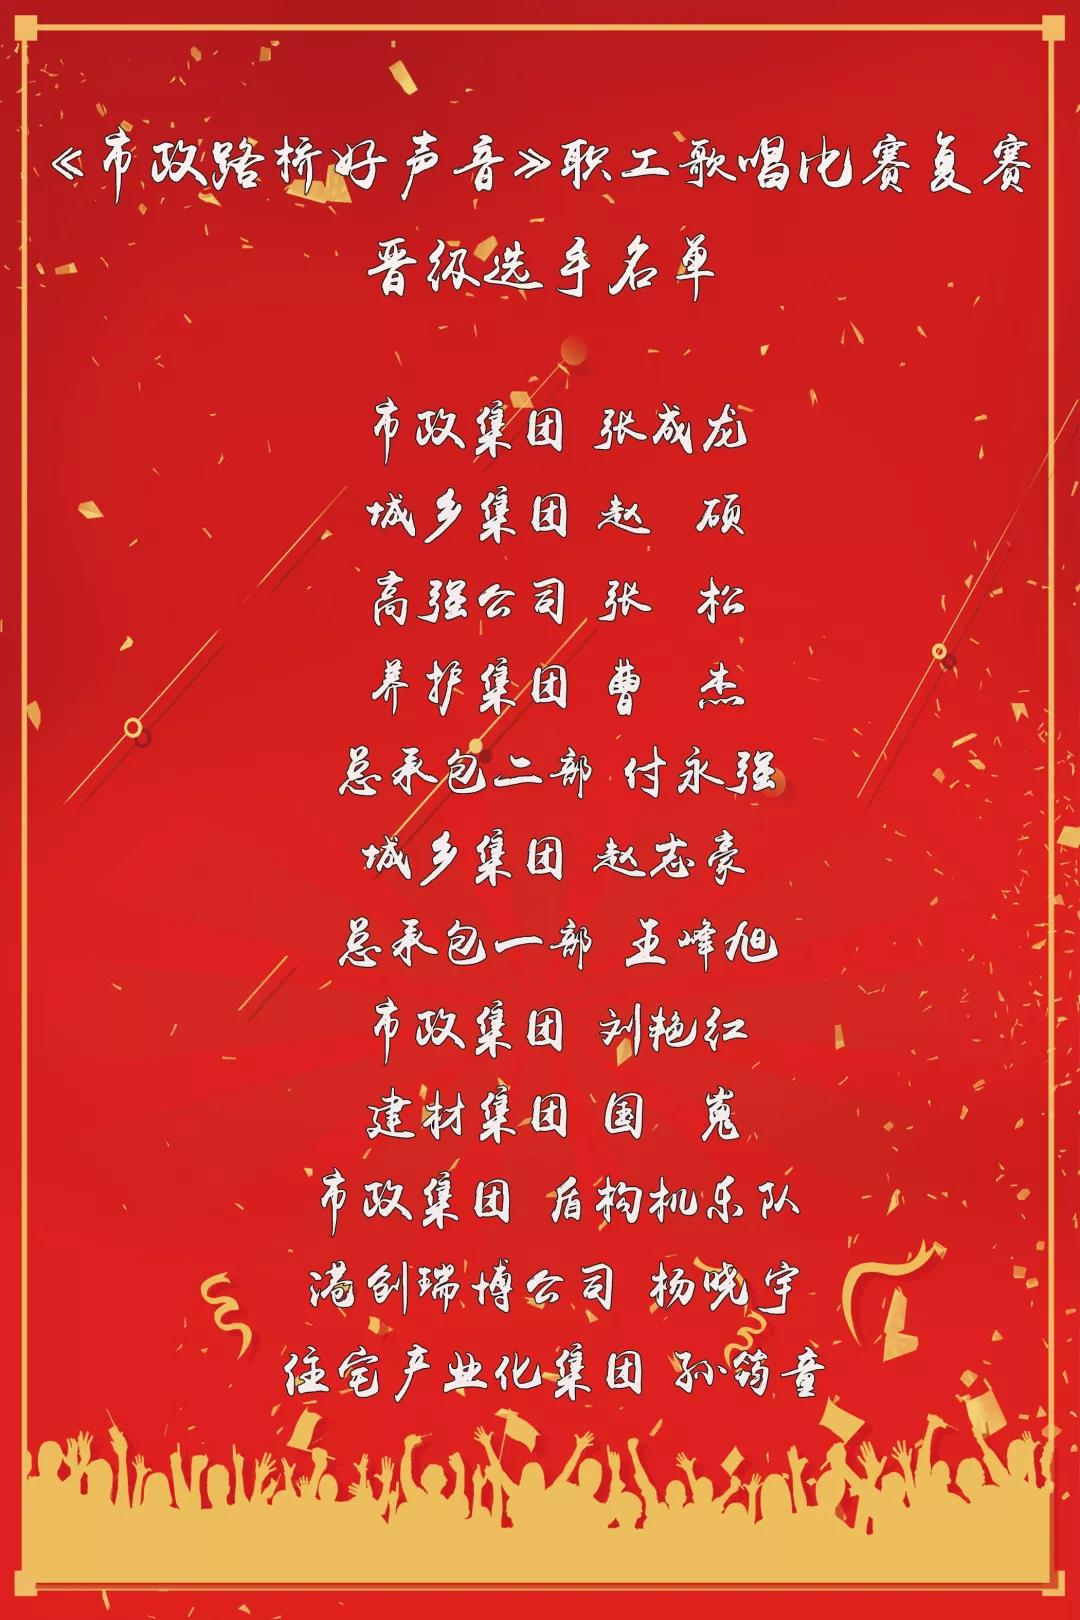 《市政路桥好声音》职工歌唱比赛复赛
晋级选手名单
市政集团 张成龙
城乡集团 赵 硕
高强公司 张 松
养护集团 曹 杰
总承包二部 付永强
城乡集团 赵志豪
总承包一部 王峰旭
市政集团 刘艳红
建材集团 国 嵬
市政集团 盾构机乐队
港创瑞博公司 杨晓宇
住宅产业化集团 孙筠童